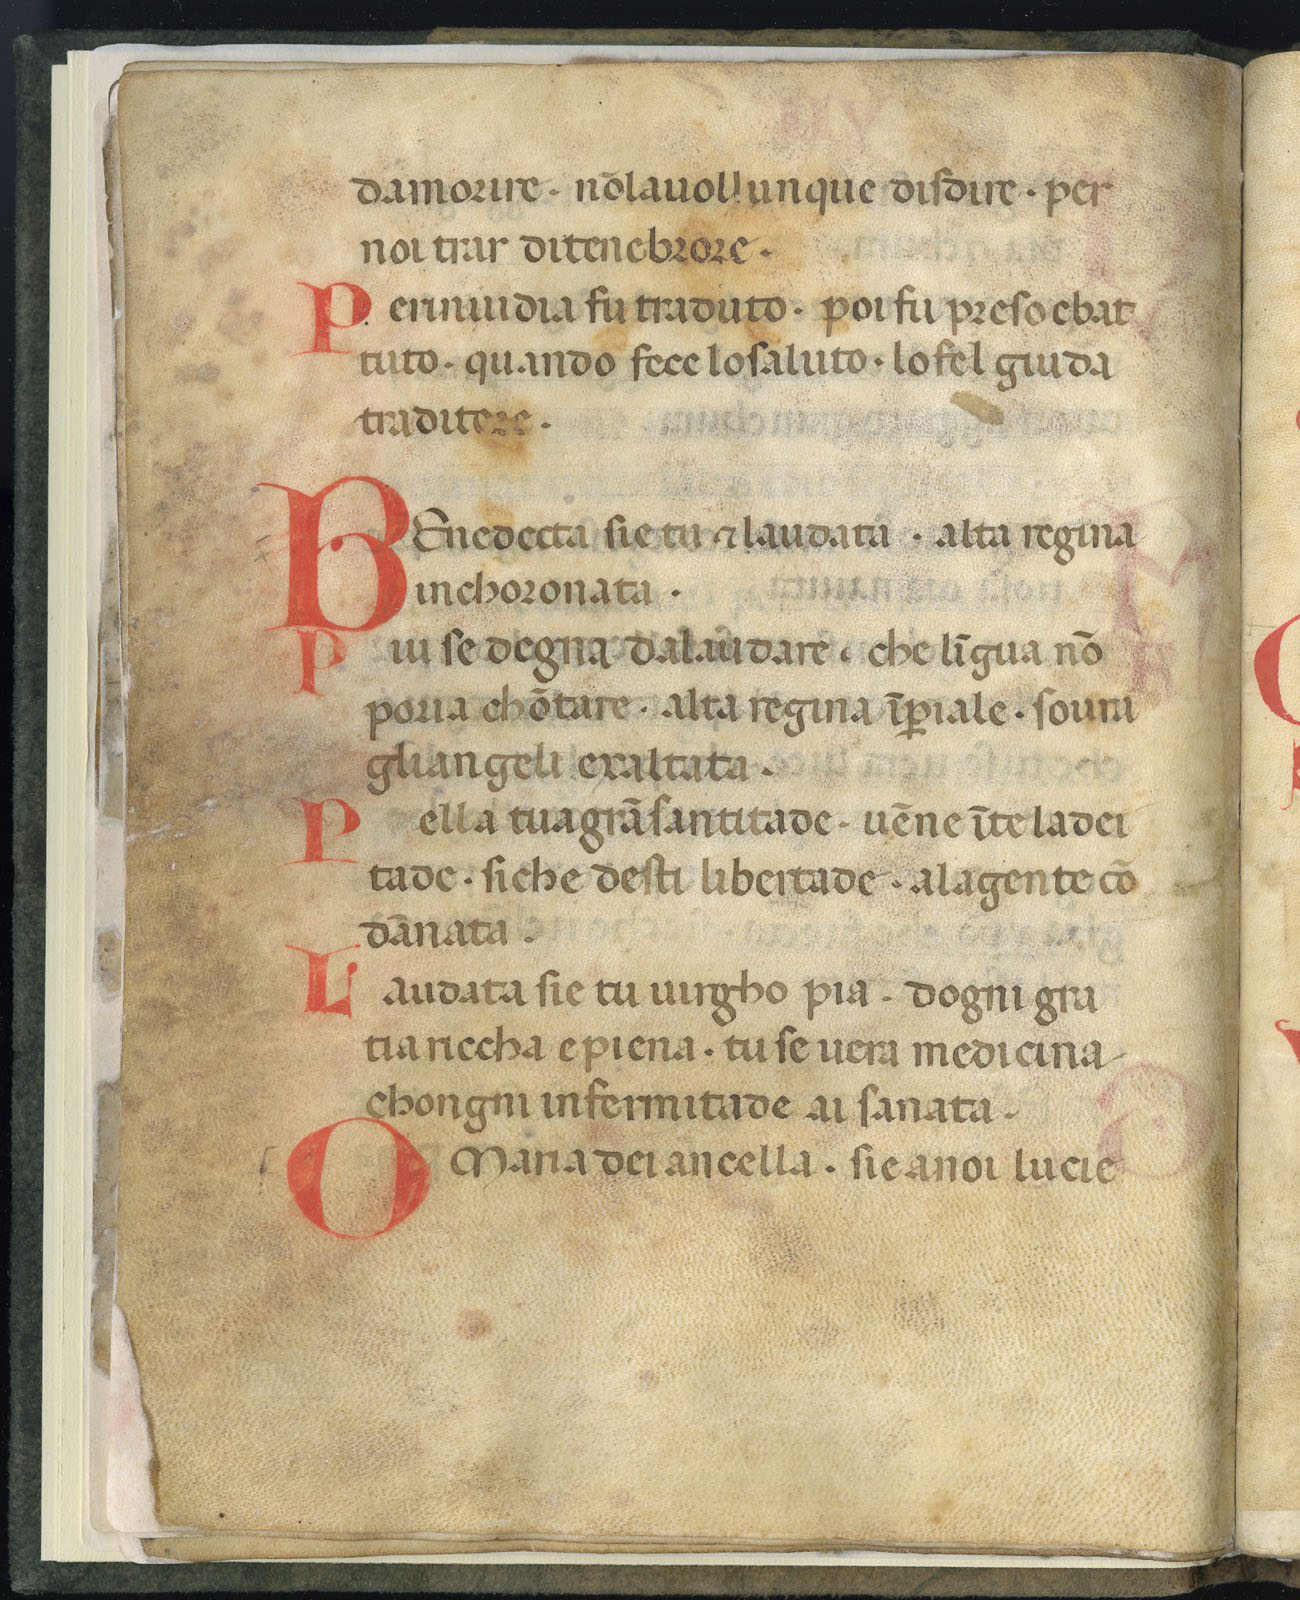 damorire · nōlauoll unque disdire · per
noi trar ditenebrore ·
Perinuidia fu traduto · poi fu preso ebat
tuto · quando fece losaluto · lofel giuda
traditore ·
BEnedecta sie tu ⁊ laudata · alta regina
inchoronata ·
Piu se degna dalaudare · che līgua nō
poria chōtare · alta regina īꝑiale · soura
gliangeli exaltata ·
Pella tuagrā santitade · uēne īte ladei
tade · siche desti libertade · alagente cō
dānata ·
Laudata sie tu uirgho pia · dogni gra
tia riccha epiena · tu se uera medicina
chongni infermitade ai sanata ·
O Maria dei ancella · sie anoi lucie